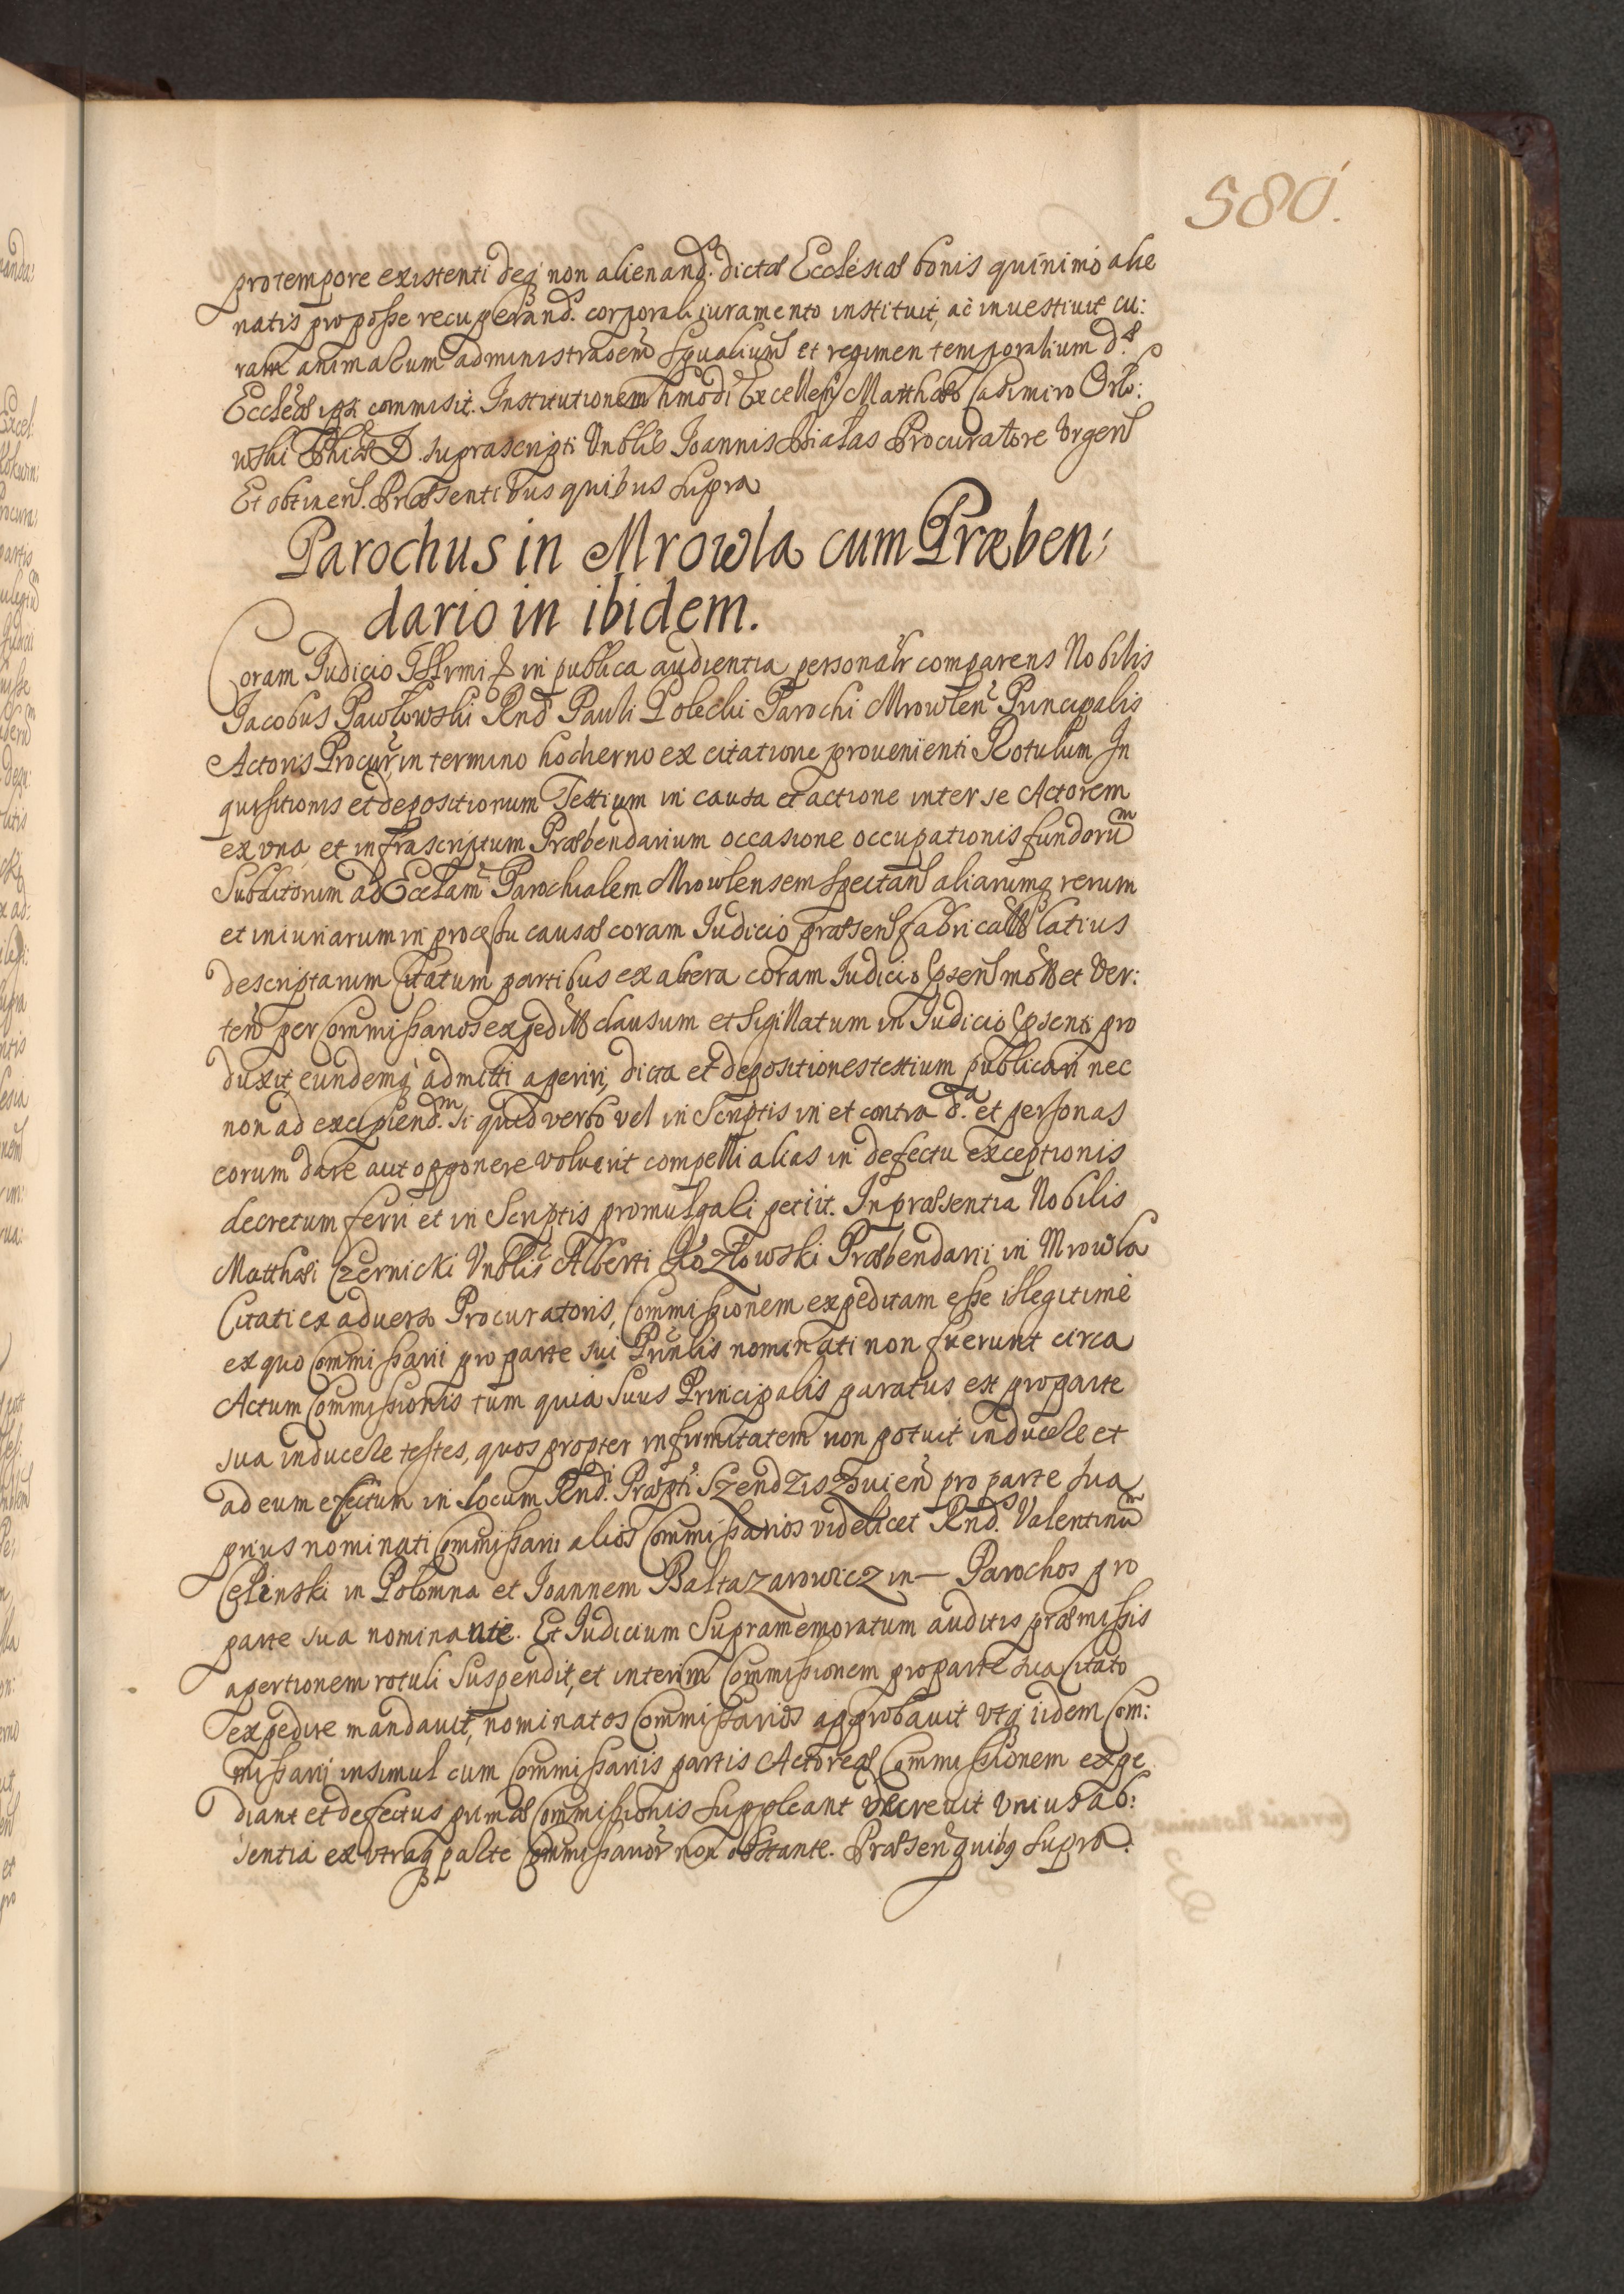 580.
pro tempore existenti deq́ non alienand. dictæ Ecclesiæ bonis quinimo alie
natis pro posse recuperand. corporali iuramento instituit, ac inuestiuit cu:
ram animarum administraoem̃ sp̃ualium et regimen temporalium d.æ
Eccl̃æ ipsi commisit. Institutionem h̃modi Excellen̄ Matthæo Casimiro Orło:
wski Phiæ D. suprascripti Vn̄blis Joannis Białas Procuratore Vrgen̄
Et obtinen̄. Præsentibus quibus supra
Parochus in Mrowla cum Præben:
dario in ibidem.
Coram Judicio in publica audientia personalr̃ comparens Nobilis
Jacobus Pawłowski Rnd̃ Pauli Polecki Parochi Mrowlen̄ Principalis
Actoris Procur̃, in termino hodierno ex citatione prouenienti Rotulum In
quisitionis et depositionum Testium in causa et actione inter se Actorem
ex vna, et infrascriptum Præbendarium occasione occupationis fundorum
Subditorum ad Eccl̃am Parochialem Mrowlensem spectan̄ aliarumq́ rerum
et iniuriarum in processu causæ coram Judicio præsen̄ latius
descriptarum Citatum partibus ex altera coram Judicio p̃sen̄ et Ver:
ten̄ per Commissarios clausum et sigillatum in Judicio p̃senti pro
duxit, eundemq́ admitti aperiri, dicta et depositiones testium publicari nec
non ad excipiend.m si quid verbo vel in Scriptis in et contra d.a et personas
eorum dare aut opponere voluerit compelli alias in defectu exceptionis
decretum ferri et in Scriptis promulgali petiit. In præsentia Nobilis
Matthæi Czernicki Vnblis̃ Alberti Kozłowski Præbendarii in Mrowla
Citati ex aduerso Procuratoris, Commissionem expeditam esse illegitimè
ex quo Commissarii pro parte sui Prin̄lis nominati non fuerunt circa
Actum Commissionis tum quia suus Principalis paratus est pro parte
sua inducere testes, quos propter infirmitatem non potuit inducere et
ad eum effectum in locum Rnd.i Præp̃ti Szendziszouien̄ pro parte sua
prius nominati Commissarii alios Commissarios videlicet Rnd.s Valentinum
Celinski in Połomna et Joannem Baltazarowicz in — Parochos pro
parte sua nominante. Et Judicium Supramemoratum auditis præmissis
apertionem rotuli Suspendit, et interim Commissionem pro parte sua Citato
expedire mandauit, nominatos Commissarios approbauit vtq́ iidem Com:
missarij insimul cum Commissariis partis Actoreæ Commissionem expe
diant et defectus primæ Commissionis suppleant decreuit vnius ab:
sentia ex vtraq́ parte Commissarior̃ non obstante. Præsen̄ quibq́ supra.